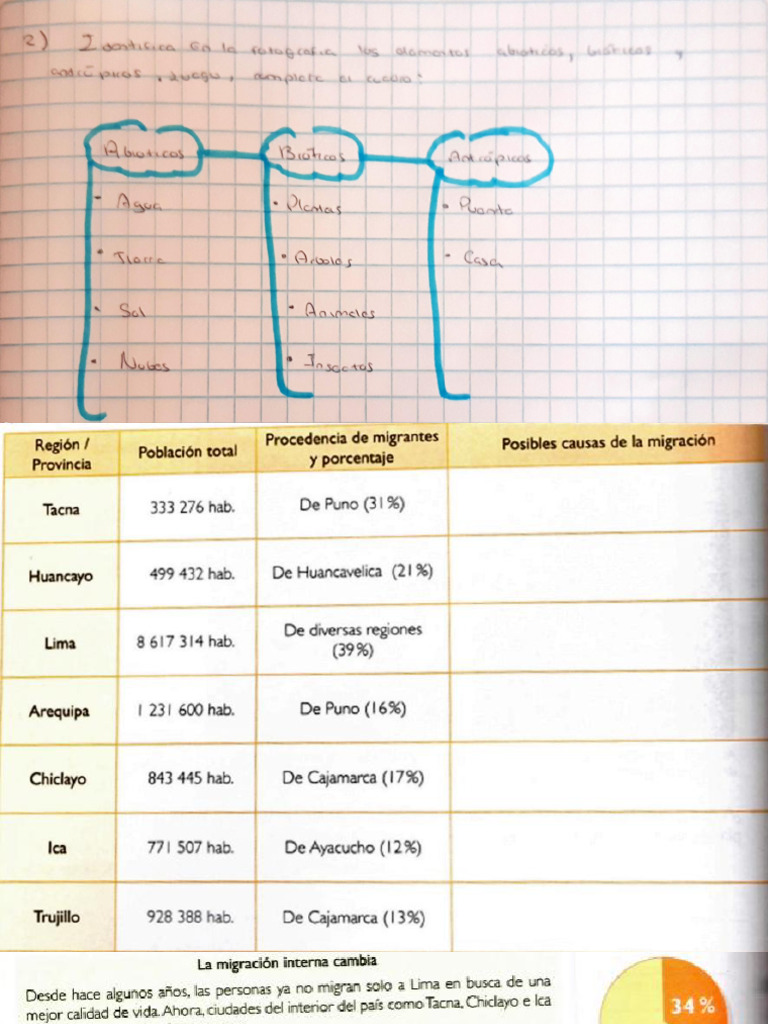 2) Identifica en la fotografia los elementos abioticos, bioticos y
antrópicos, luego, complete el cuadro:
Abioticos Bióticos Antrópicos
• Agua • Plantas • Puente
• Tierra • Arboles - Casa
• Sol • Animales
• Nubes • Insectos
Región / Provincia Población total Procedencia de migrantes y porcentaje Posibles causas de la migración
Tacna 333 276 hab. De Puno (31%)
Huancayo 499 432 hab. De Huancavelica (21%)
Lima 8 617 314 hab. De diversas regiones (39%)
Arequipa 1 231 600 hab. De Puno (16%)
Chiclayo 843 445 hab. De Cajamarca (17%)
Ica 771 507 hab. De Ayacucho (12%)
Trujillo 928 388 hab. De Cajamarca (13%)
La migración interna cambia
Desde hace algunos años, las personas ya no migran solo a Lima en busca de una
mejor calidad de vida. Ahora, ciudades del interior del país como Tacna, Chiclayo e Ica
34 %